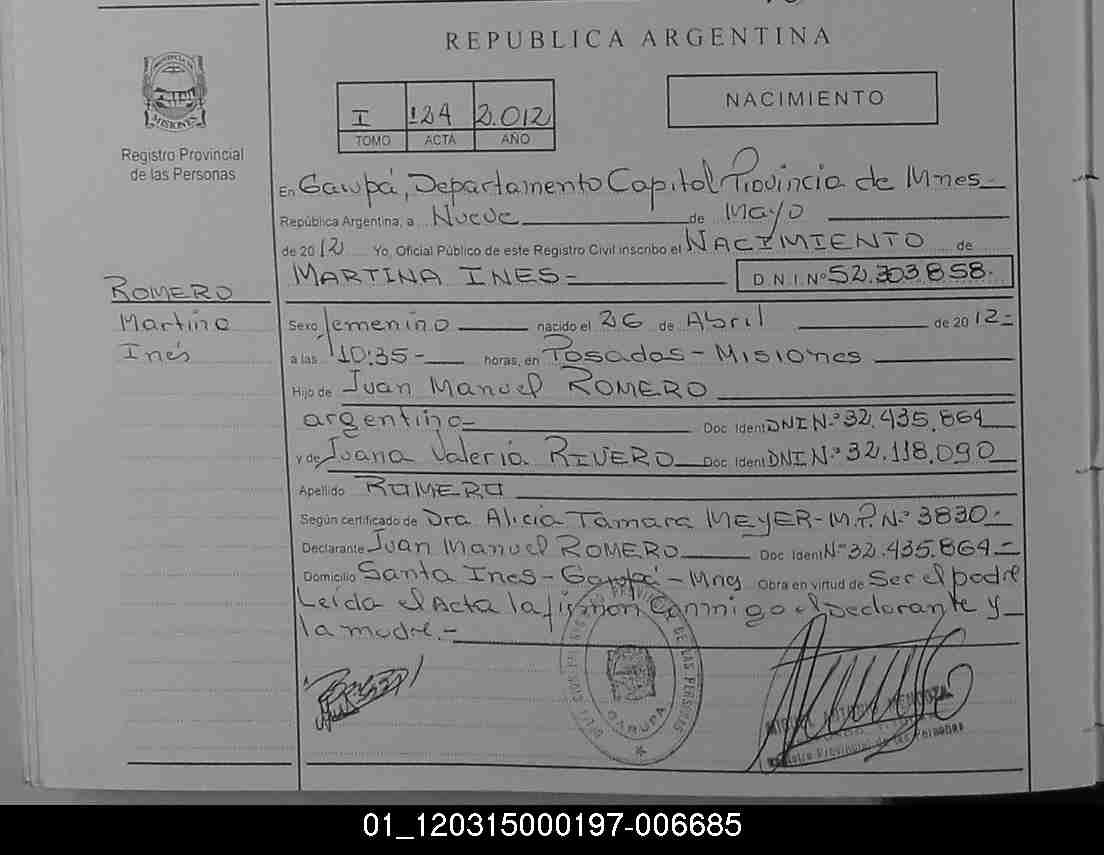 REPUBLICA ARGENTINA
PROVINCIA DE
MISIONES
Registro Provincial
de las Personas
I 124 2.012
TOMO ACTA AÑO
NACIMIENTO
En Garupá, Departamento Capital Provincia de Mnes
República Argentina, a Nueve de Mayo
de 2012 Yo, Oficial Público de este Registro Civil inscribo el NACIMIENTO de
MARTINA INES- D.N.I.Nº 52.303.858-
ROMERO
Martina
Inés
Sexo femenino nacido el 26 de Abril de 2012-
a las 10:35- horas, en Posadas - Misiones
Hijo de Juan Manuel ROMERO
argentino- Doc. Ident DNI Nº 32.435.864
y de Juana Valeria RIVERO Doc. Ident DNI Nº 32.118.090
Apellido ROMERO
Según certificado de Dra Alicia Tamara MEYER-M.P. Nº 3830-
Declarante Juan Manuel ROMERO Doc. Ident Nº 32.435.864-
Domicilio Santa Ines - Garupá - Mnes Obra en virtud de Ser el padre
Leída el Acta la firman Conmigo el Declarante y
la madre.-
GARUPA
Registro Provincial de las Personas
01_120315000197-006685